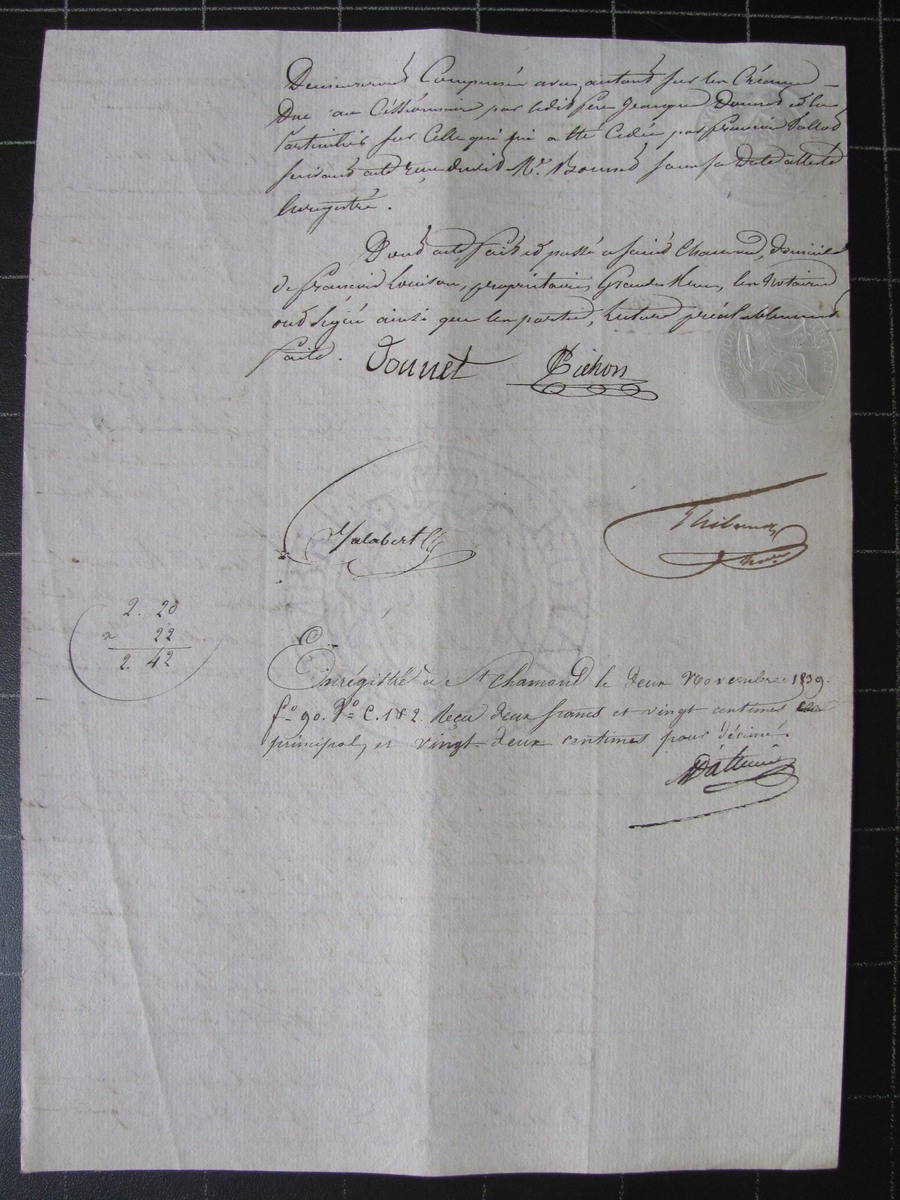 Demeureront Compensés avec autant sur les Créances
Due au Cessionnaire par ledit sieur Donnet et
Particulier sur Celle qui lui a été Cédée par François
suivant acte reçu dudit Me. sous sa date
Enregistré.
Dont acte, fait et passé à Saint Chamond, domicile
de François Louison, propriétaire, Grande Rue, les Notaires
ont signé ainsi que les parties, lecture préalablement
faite.
Donnet Pichon
Jalabert
Thibaud
2. 20
22
2. 42
Enrégistré à St Chamond le deux Novembre 1839.
fo. 90. Vo. C. 1 & 2. Reçu deux francs et vingt centimes en
principal, et vingt-deux centimes pour décime.